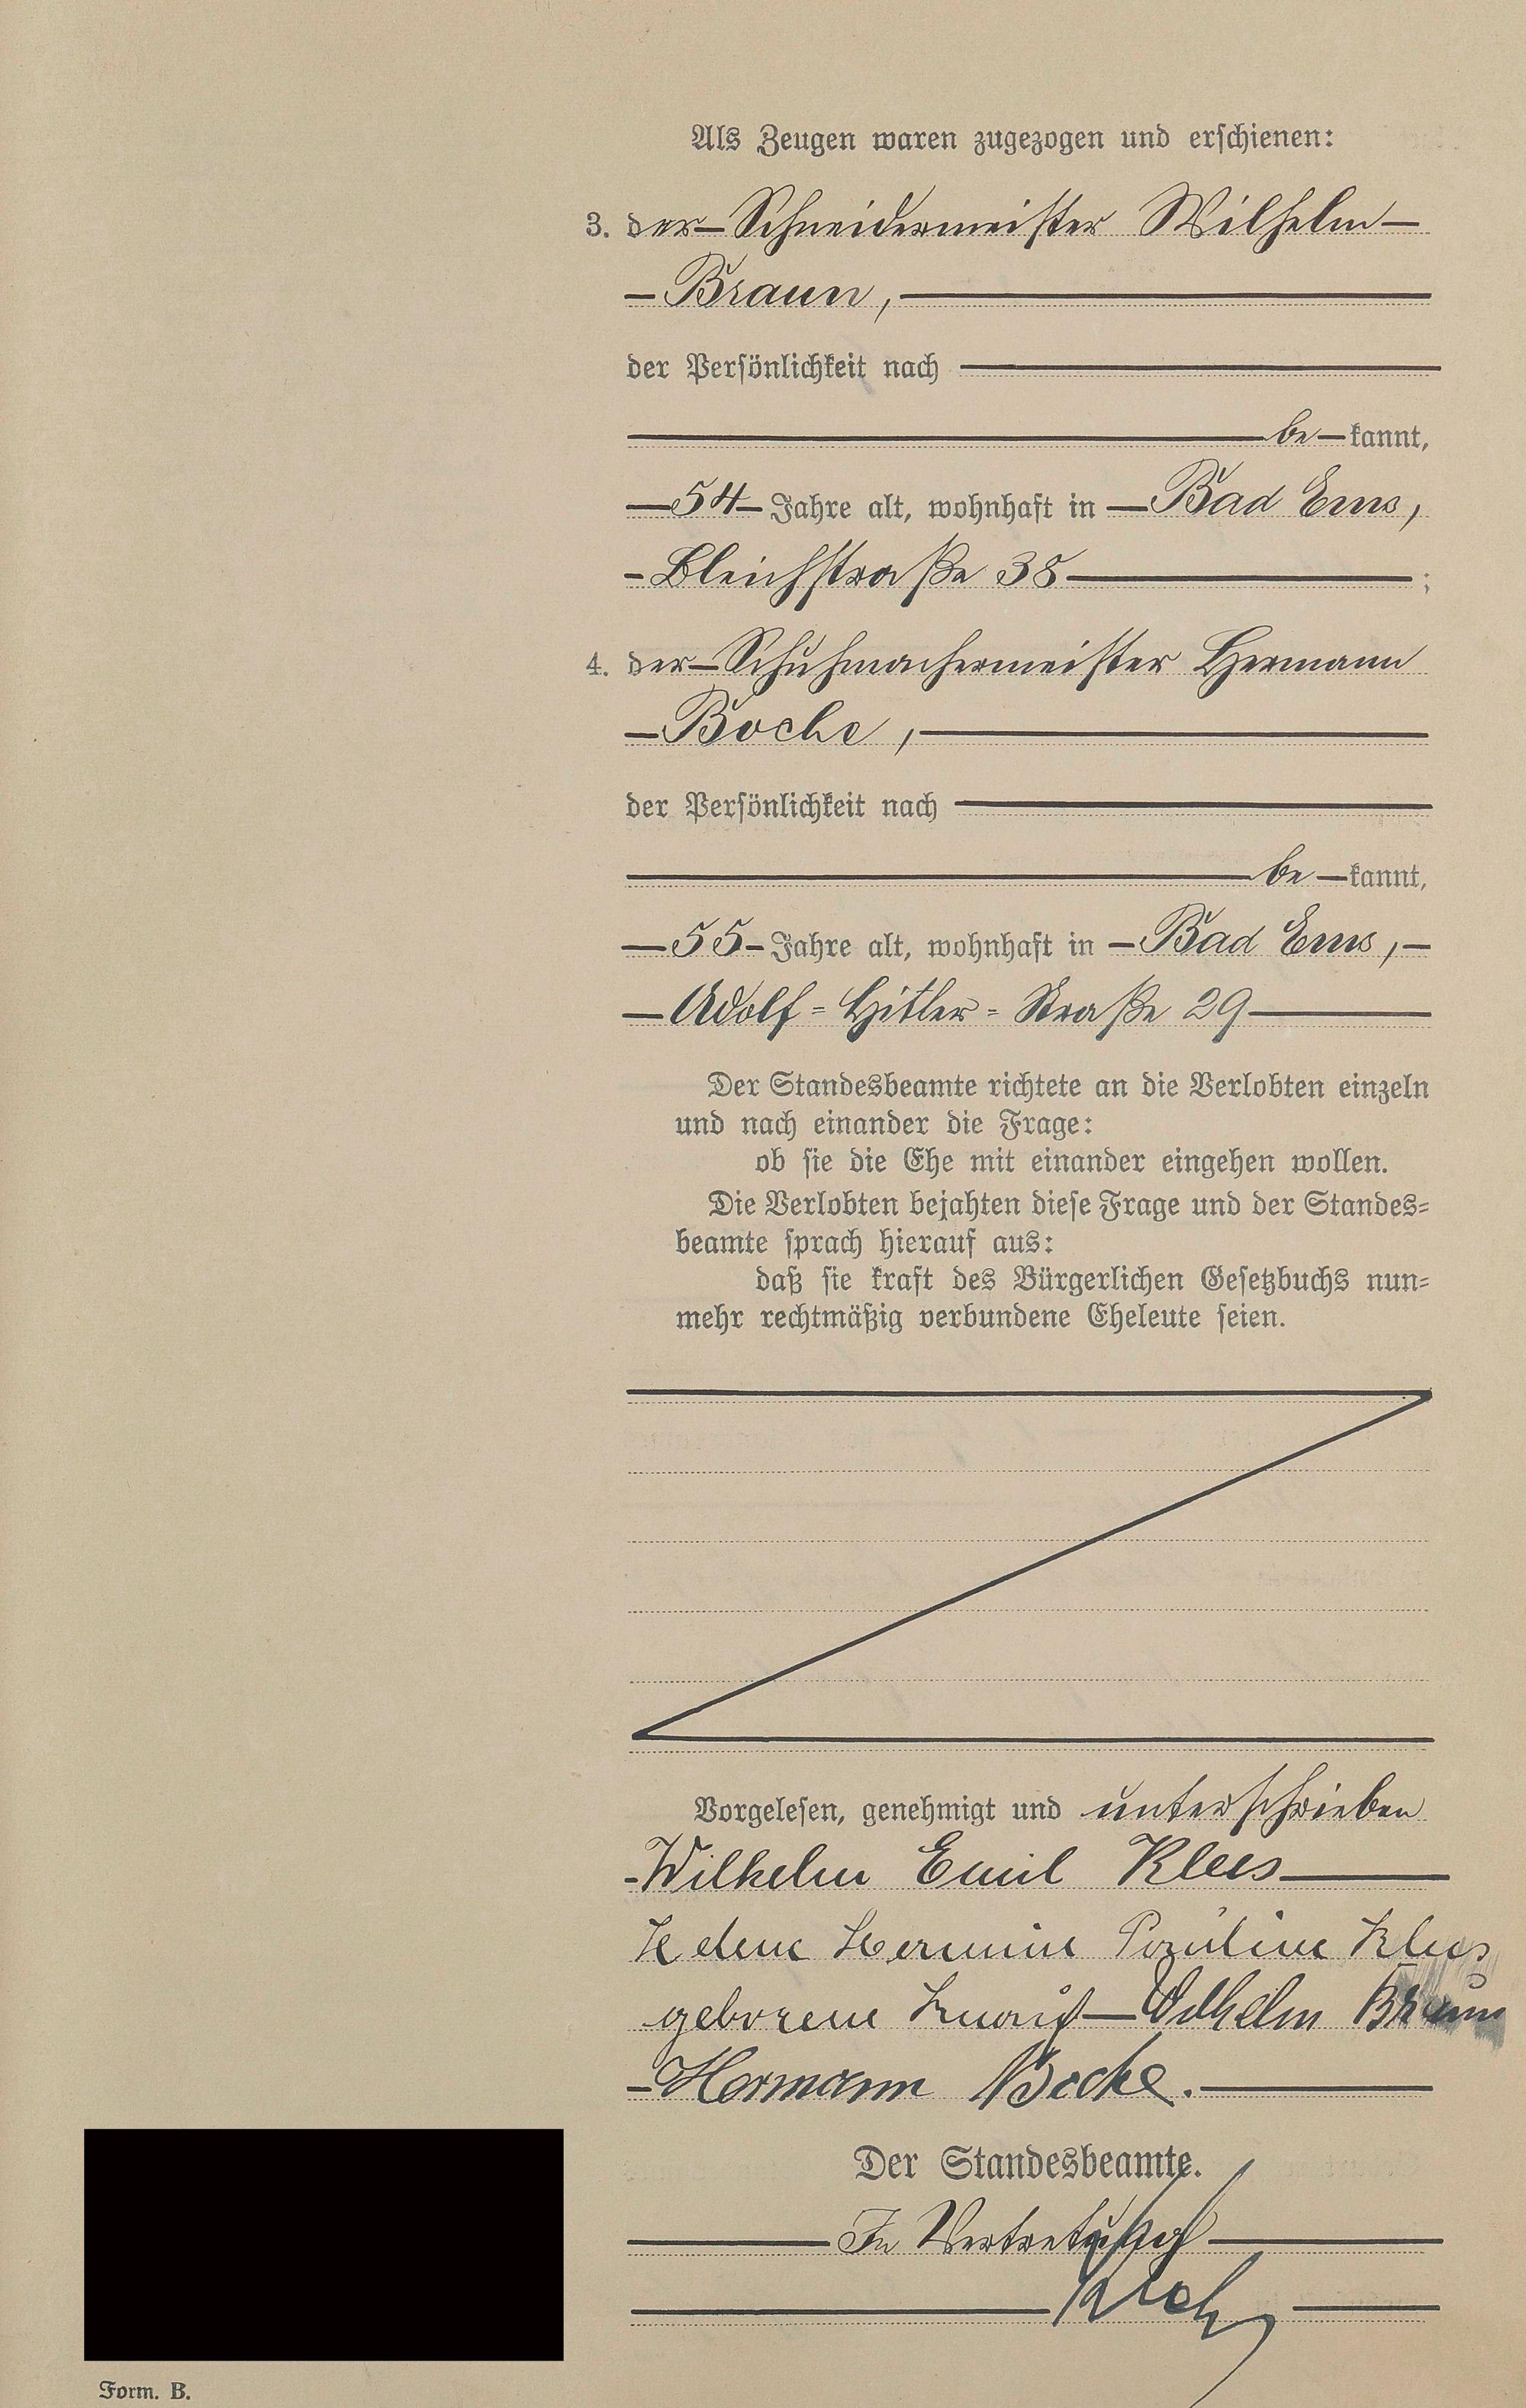 Als Zeugen waren zugezogen und erschienen:
3. der Schneidermeister Wilhelm
Braun,
der Persönlichkeit nach
be kannt,
54 Jahre alt, wohnhaft in Bad Ems,
Bleichstraße 38 ;
4. der Schuhmachermeister Hermann
Boche,
der Persönlichkeit nach
be kannt,
55 Jahre alt, wohnhaft in Bad Ems,
Adolf=Hitler=Straße 29
Der Standesbeamte richtete an die Verlobten einzeln
und nach einander die Frage:
ob sie die Ehe mit einander eingehen wollen.
Die Verlobten bejahten diese Frage und der Standes=
beamte sprach hierauf aus:
daß sie kraft des Bürgerlichen Gesetzbuchs nun=
mehr rechtmäßig verbundene Eheleute seien.
Vorgelesen, genehmigt und unterschrieben
Wilhelm Emil Klees
Helene Hermine Pauline Klees
geborene Knauf Wilhelm Braun
Hermann Boche.
Der Standesbeamte.
In Vertretung
Form. B.